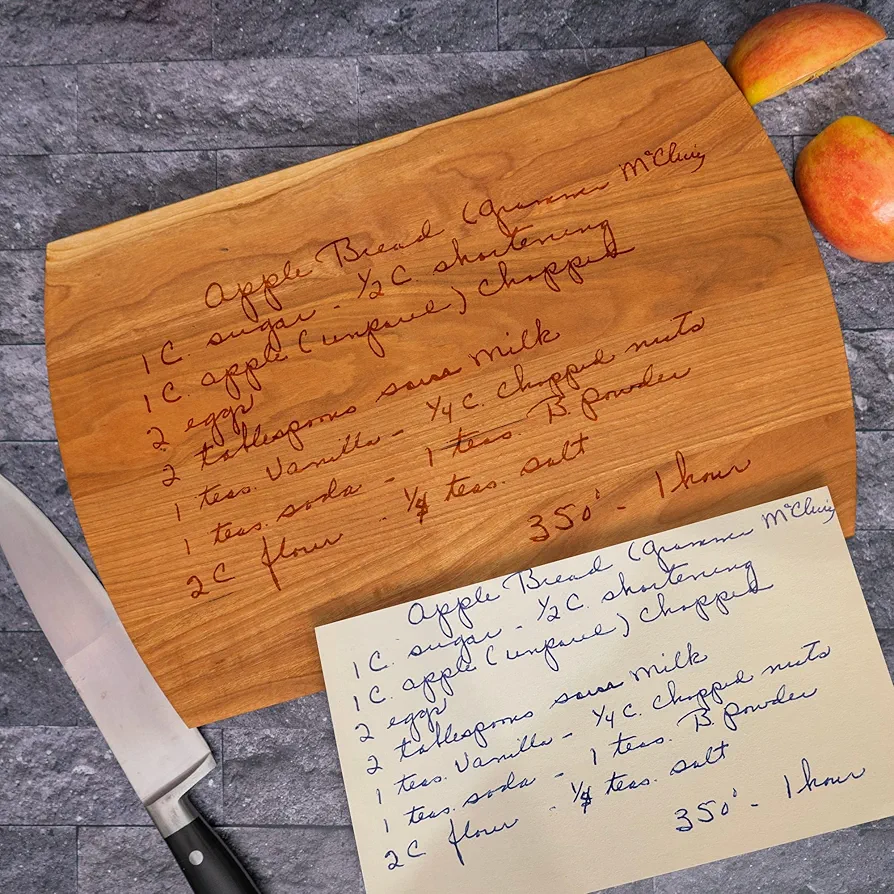 Apple Bread (Gramma McClurg
1 C. sugar - 1/2 C. shortening
1 C. apple (unpared) chopped
2 eggs
2 tablespoons sour milk
1 teas. Vanilla - 1/4 C. chopped nuts
1 teas. soda - 1 teas. B. powder
2 C flour - teas. salt
350° - 1 hour
Apple Bread (Gramma McClurg
1 C. sugar - 1/2 C. shortening
1 C. apple (unpared) chopped
2 eggs
2 tablespoons sour milk
1 teas. Vanilla - 1/4 C. chopped nuts
1 teas. soda - 1 teas. B. powder
2 C flour - teas. salt
350° - 1 hour